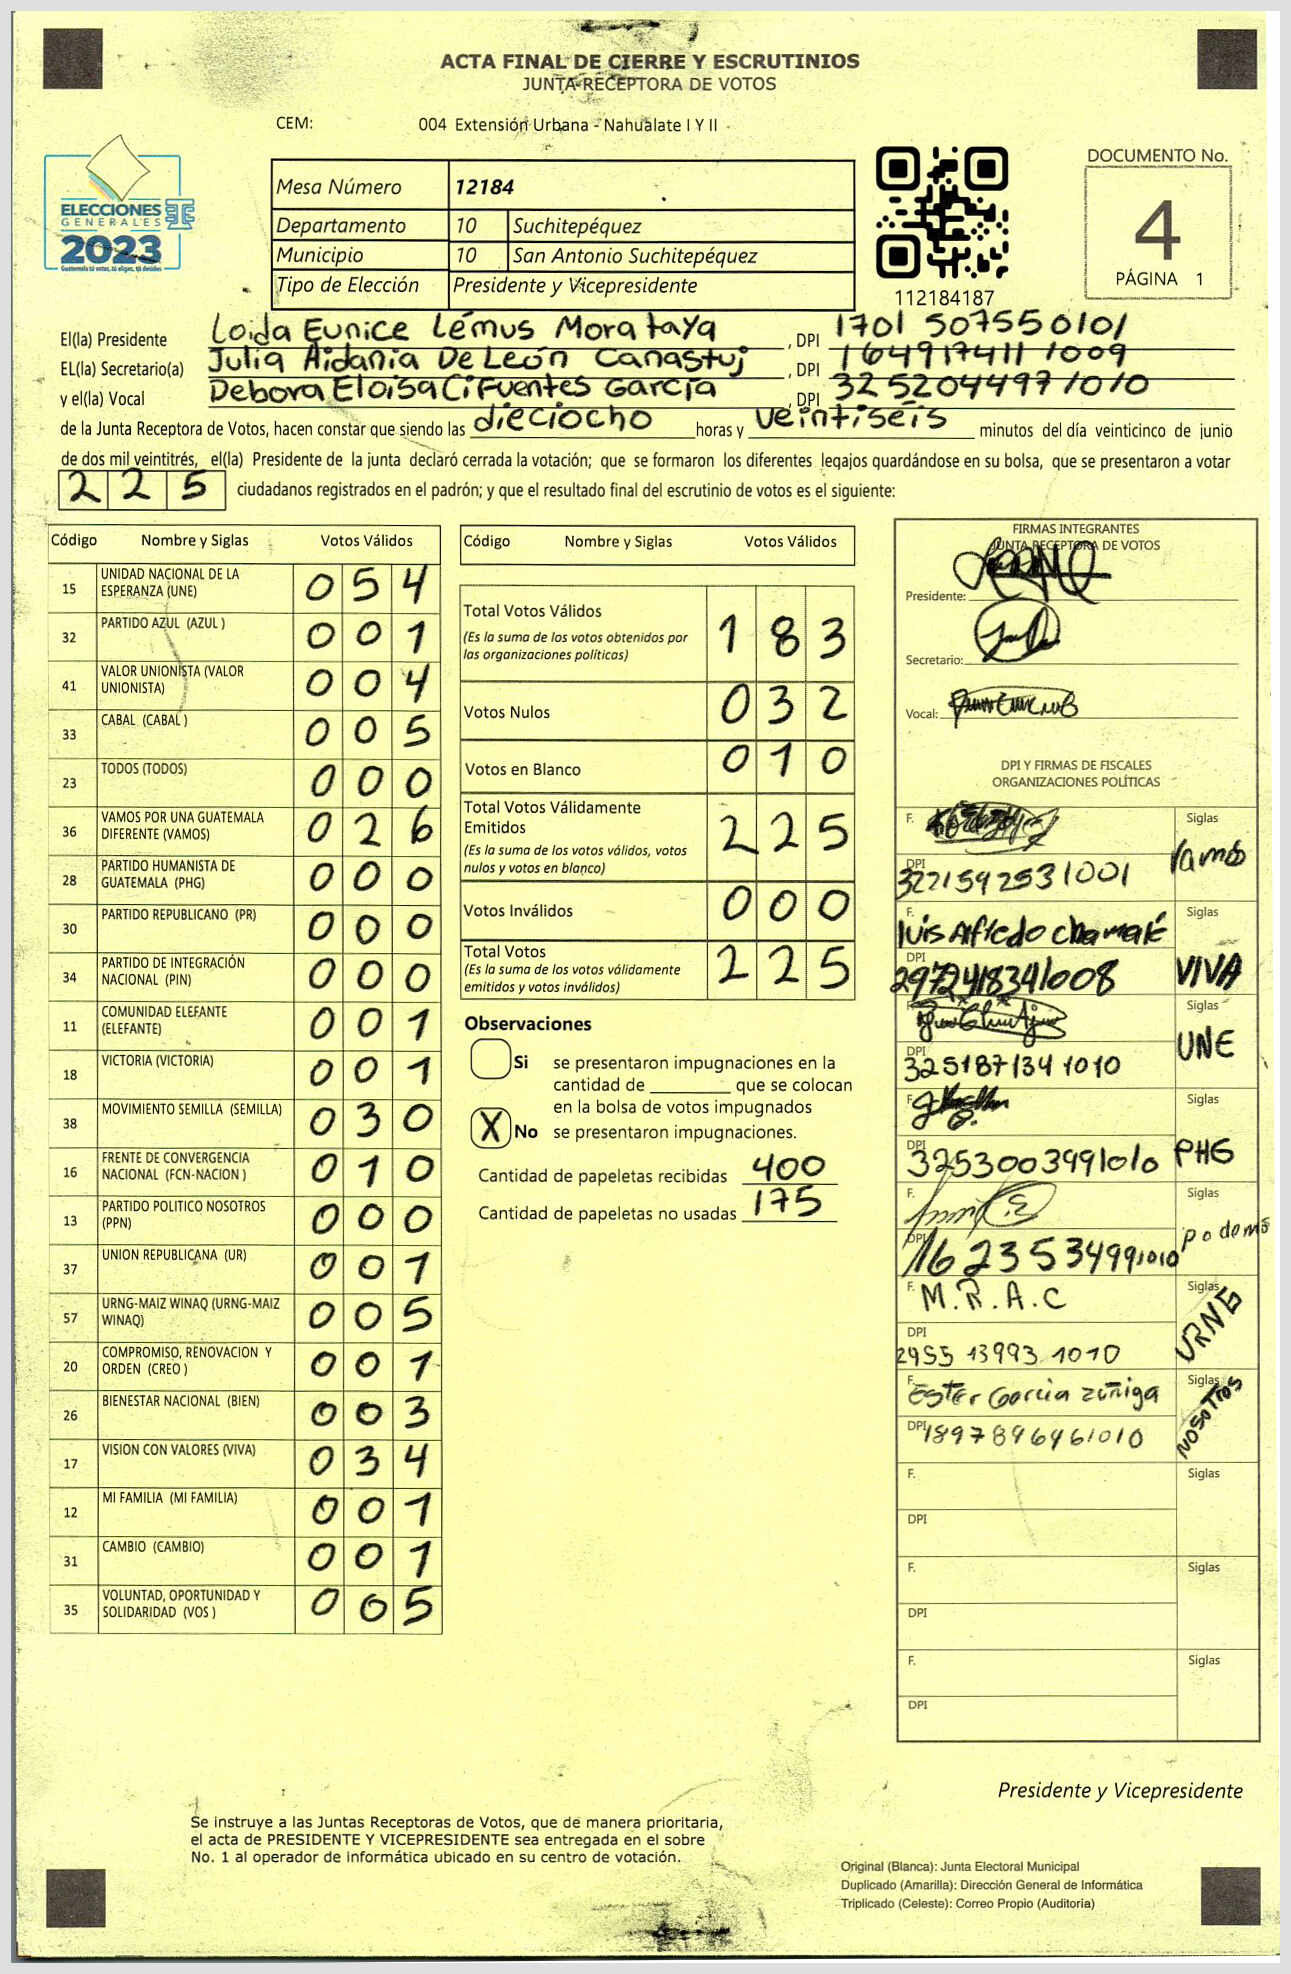 ACTA FINAL DE CIERRE Y ESCRUTINIOS
JUNTA RECEPTORA DE VOTOS
CEM: 004 Extensión Urbana - Nahualate I Y II
ELECCIONES
GENERALES
2023
Guatemala tú votas, tú eliges, tú decides
Mesa Número 12184
Departamento 10 Suchitepéquez
Municipio 10 San Antonio Suchitepéquez
Tipo de Elección Presidente y Vicepresidente
112184187
DOCUMENTO No.
4
PÁGINA 1
El(la) Presidente Loida Eunice Lémus Morataya , DPI 1701 50755 0101
EL(la) Secretario(a) Julia Aidania De León Canastuj , DPI 1649174111009
y el(la) Vocal Debora Eloisa Cifuentes García , DPI 3252044971010
de la Junta Receptora de Votos, hacen constar que siendo las dieciocho horas y veintiséis minutos del día veinticinco de junio
de dos mil veintitrés, el(la) Presidente de la junta declaró cerrada la votación; que se formaron los diferentes legajos guardándose en su bolsa, que se presentaron a votar
225 ciudadanos registrados en el padrón; y que el resultado final del escrutinio de votos es el siguiente:
Código Nombre y Siglas Votos Válidos
15 UNIDAD NACIONAL DE LA ESPERANZA (UNE) 054
32 PARTIDO AZUL (AZUL ) 001
41 VALOR UNIONISTA (VALOR UNIONISTA) 004
33 CABAL (CABAL ) 005
23 TODOS (TODOS) 000
36 VAMOS POR UNA GUATEMALA DIFERENTE (VAMOS) 026
28 PARTIDO HUMANISTA DE GUATEMALA (PHG) 000
30 PARTIDO REPUBLICANO (PR) 000
34 PARTIDO DE INTEGRACIÓN NACIONAL (PIN) 000
11 COMUNIDAD ELEFANTE (ELEFANTE) 001
18 VICTORIA (VICTORIA) 001
38 MOVIMIENTO SEMILLA (SEMILLA) 030
16 FRENTE DE CONVERGENCIA NACIONAL (FCN-NACION ) 010
13 PARTIDO POLITICO NOSOTROS (PPN) 000
37 UNION REPUBLICANA (UR) 001
57 URNG-MAIZ WINAQ (URNG-MAIZ WINAQ) 005
20 COMPROMISO, RENOVACION Y ORDEN (CREO ) 001
26 BIENESTAR NACIONAL (BIEN) 003
17 VISION CON VALORES (VIVA) 034
12 MI FAMILIA (MI FAMILIA) 001
31 CAMBIO (CAMBIO) 001
35 VOLUNTAD, OPORTUNIDAD Y SOLIDARIDAD (VOS ) 005
Código Nombre y Siglas Votos Válidos
Total Votos Válidos 183
(Es la suma de los votos obtenidos por
las organizaciones politicas)
Votos Nulos 032
Votos en Blanco 010
Total Votos Válidamente
Emitidos 225
(Es la suma de los votos válidos, votos
nulos y votos en blanco)
Votos Inválidos 000
Total Votos 225
(Es la suma de los votos válidamente
emitidos y votos inválidos)
Observaciones
Si se presentaron impugnaciones en la
cantidad de ________ que se colocan
en la bolsa de votos impugnados
X No se presentaron impugnaciones.
Cantidad de papeletas recibidas 400
Cantidad de papeletas no usadas 175
FIRMAS INTEGRANTES
JUNTA RECEPTORA DE VOTOS
Presidente:
Secretario:
Vocal:
DPI Y FIRMAS DE FISCALES
ORGANIZACIONES POLÍTICAS
F. Siglas
Vamos
DPI 3221592531001
F. Luis Alfredo Chamalé Siglas
DPI 2972418341008 VIVA
F. Siglas
UNE
DPI 3251871341010
F. Siglas
DPI 3253003991010 PHG
F. Siglas
podemos
DPI 1623534991010
F. M.R.A.C Siglas
URNG
DPI 2955 13993 1010
F. Ester Garcia Zúñiga Siglas
NOSOTROS
DPI 1897896961010
F. Siglas
DPI
F. Siglas
DPI
F. Siglas
DPI
Presidente y Vicepresidente
Se instruye a las Juntas Receptoras de Votos, que de manera prioritaria,
el acta de PRESIDENTE Y VICEPRESIDENTE sea entregada en el sobre
No. 1 al operador de informática ubicado en su centro de votación.
Original (Blanca): Junta Electoral Municipal
Duplicado (Amarilla): Dirección General de Informática
Triplicado (Celeste): Correo Propio (Auditoría)